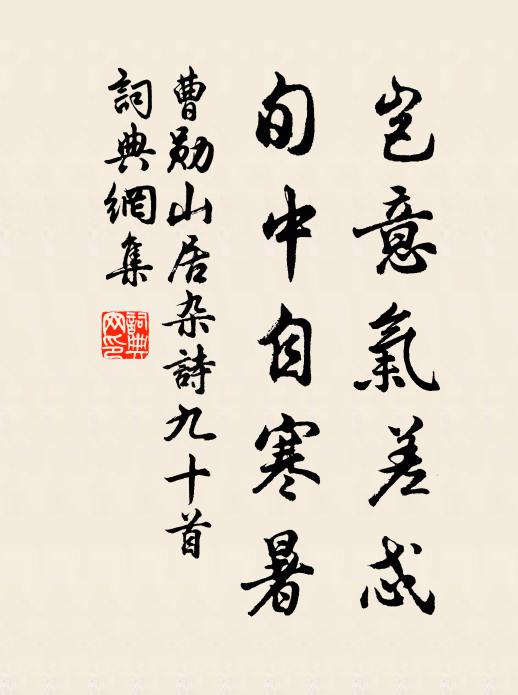 岂意氣差忒
旬中自寒暑
曹勛山居杂詩九十首
詞典網集
詞典網印